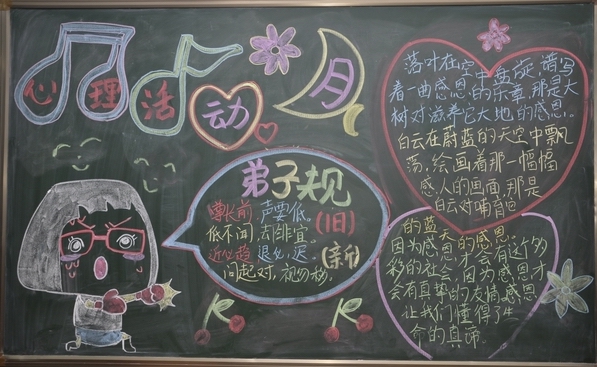 心理活动月
弟子规
尊长前 声要低。
低不闻 去非宜。
(旧)
近必趋 退必迟。
问起对，视勿移。
(新)
落叶在空中盘旋，谱写
着一曲感恩的乐章，那是大
树对滋养它大地的感恩。
白云在蔚蓝的天空中飘
荡，绘画着那一幅幅
感人的画面，那是
白云对哺育它
的蓝天的感恩。
因为感恩，才会有这个多
彩的社会，因为感恩才
会有真挚的友情，感恩
让我们懂得了生
命的真谛。